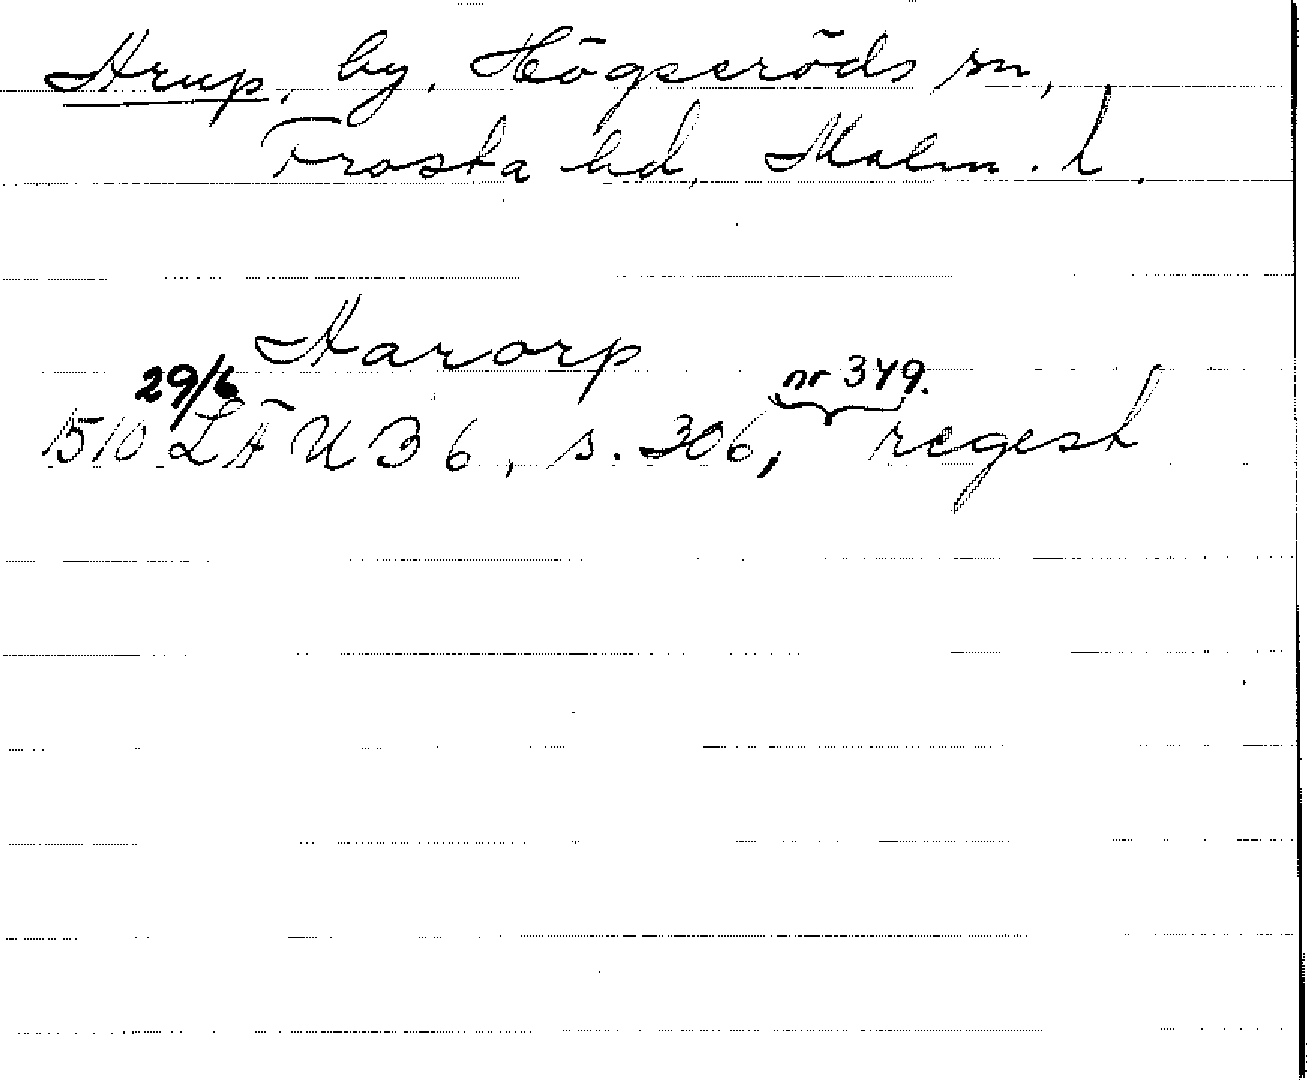 Hrup, by. Högseröds sn,
Frosta hd, Malm. l.
Harorp
29/6 nr 349.
1510 LÄUB 6, s. 306, regest